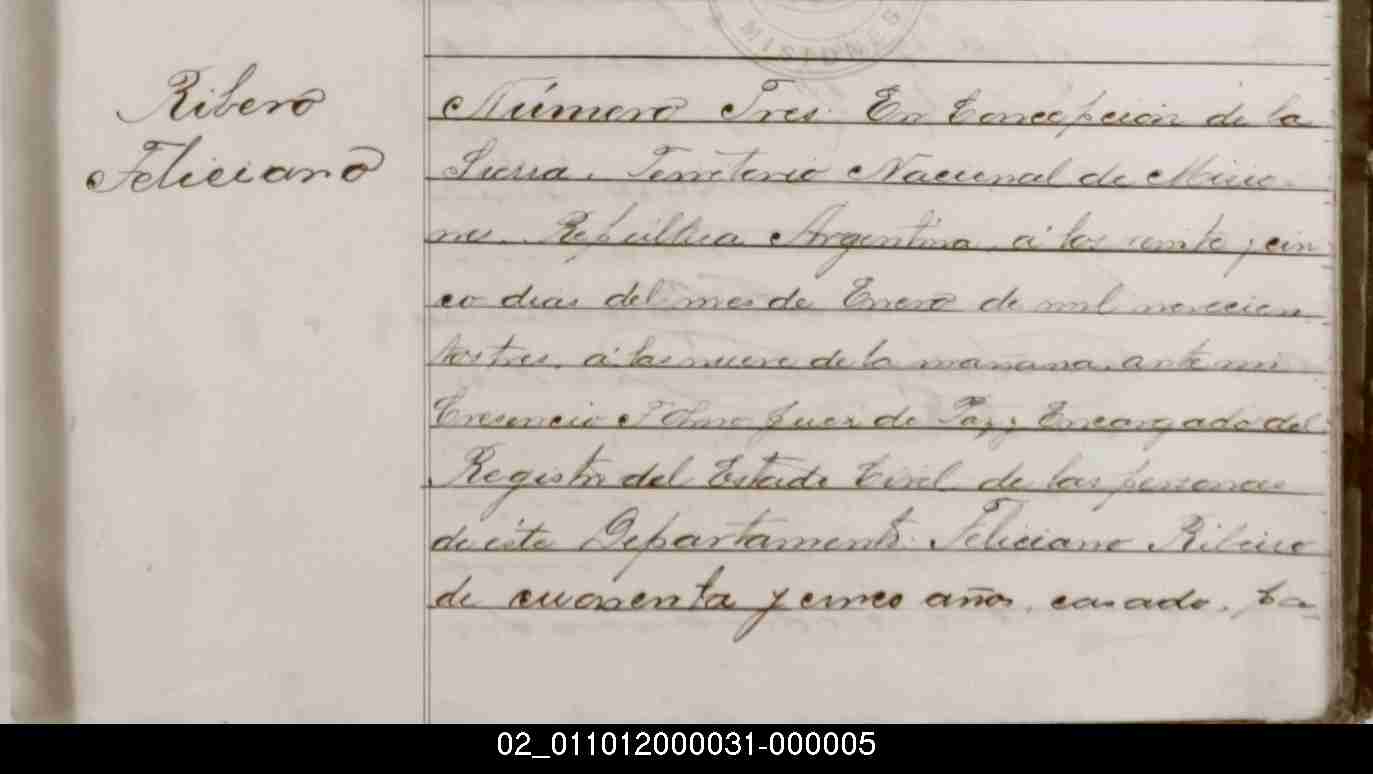 MISIONES
Ribero
Feliciano
Número Tres. En Concepcion de la
Sierra, Territorio Nacional de Misio-
nes, República Argentina, á los veinte y cin
co dias del mes de Enero de mil novecien
tos tres, á las nueve de la mañana, ante mi
Cresencio Juez de Paz y Encargado del
Registro del Estado Civil de las personas
de este Departamento. Feliciano Ribeiro
de cuarenta y cinco años, casado,
02_011012000031-000005